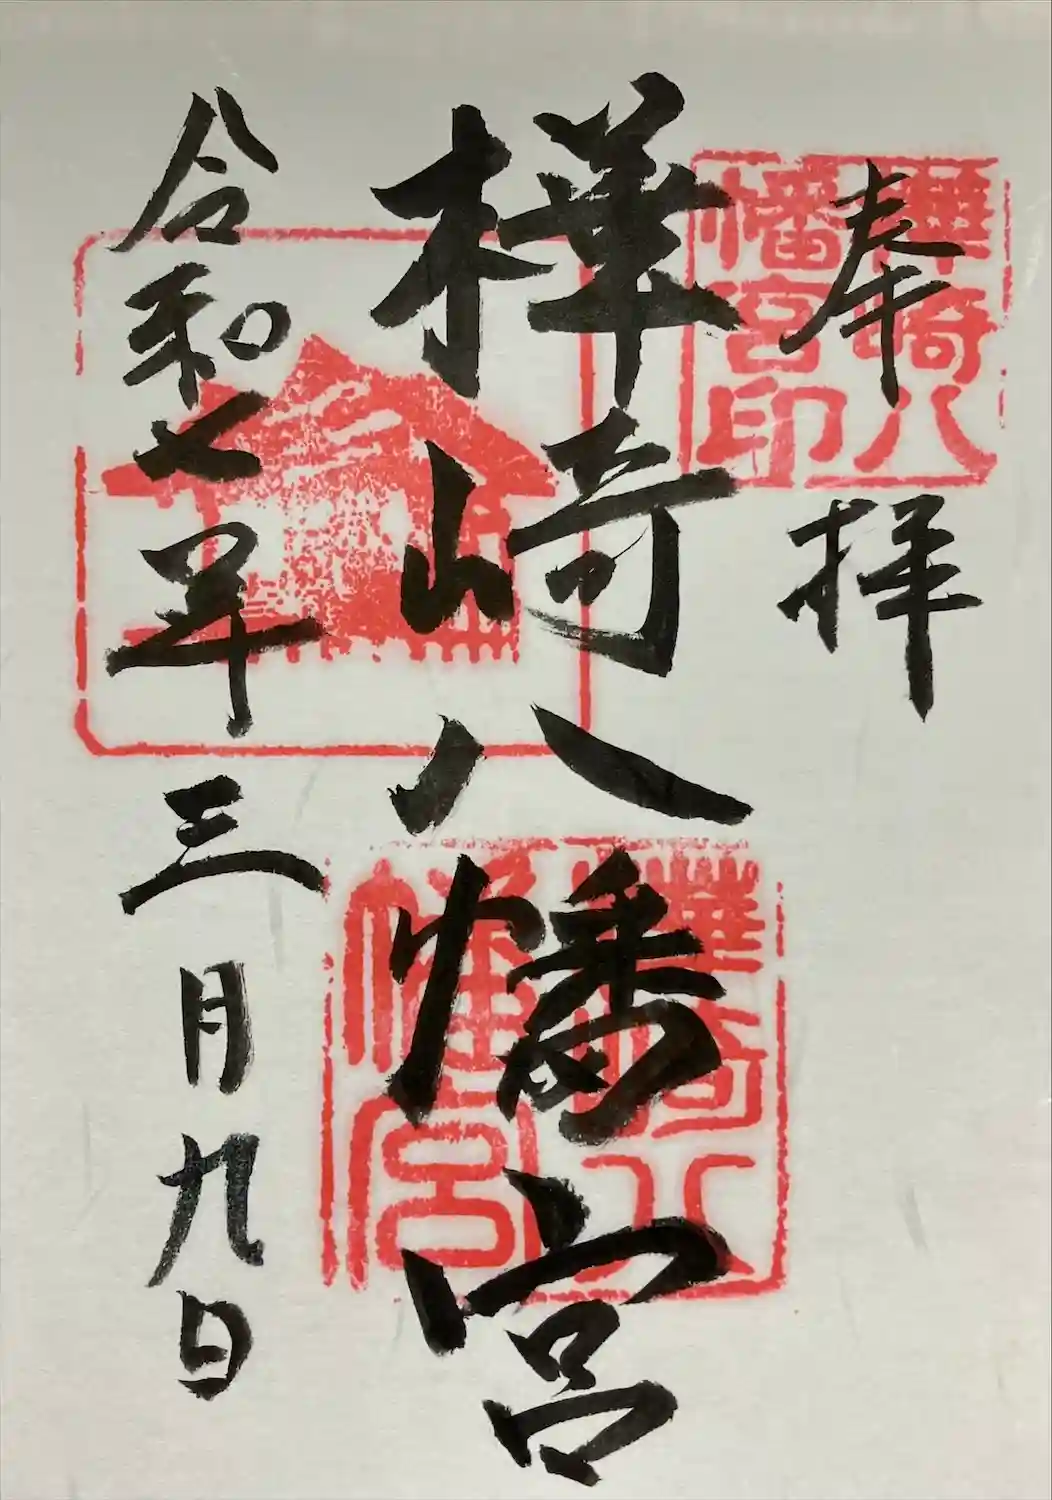 奉拝
樺崎八幡宮
令和七年三月九日
樺崎八
幡宮印
樺崎八
幡宮